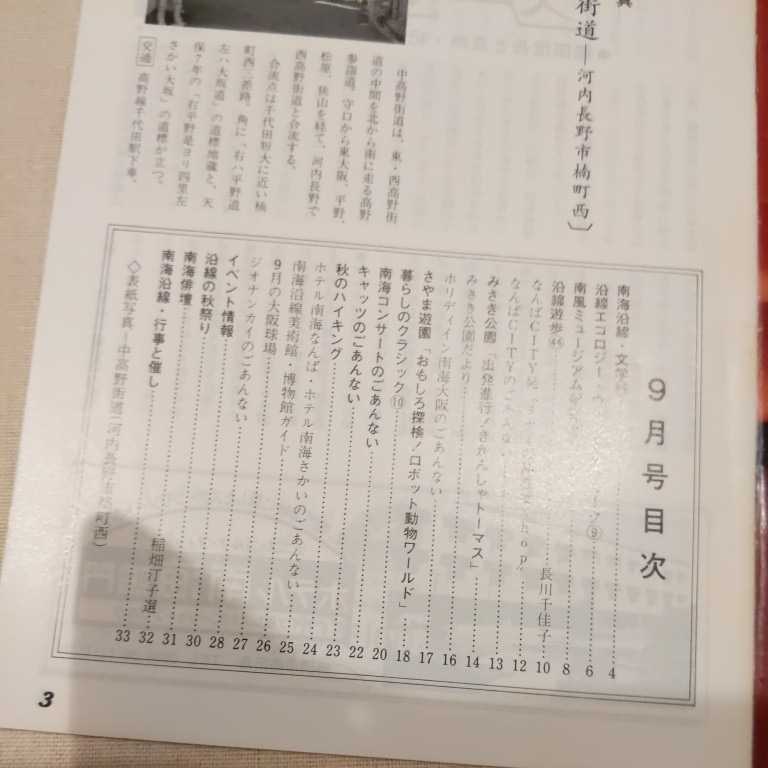 街道―河内長野市楠町西〕
中高野街道は、東・西高野街
道の中間を北から南に走る高野
参詣道。守口から東大阪、平野、
松原、狭山を経て、河内長野で
西高野街道と合流する。
合流点は千代田短大に近い楠
町西三差路。角に「右ハ平野道
左ハ大坂道」の道標地蔵と、天
保7年の「右平野是ヨリ四里左
さかい大坂」の道標が立つ。
交通 高野線千代田駅下車。
9月号目次
南海沿線・文学 4
沿線エコロジー ⑨ 6
南風ミュージアム 8
沿線遊歩㊹ 長川千佳子 10
なんばCITY 12
なんばCITYのごあんない 13
みさき公園「出発進行!きかんしゃトーマス」 14
みさき公園だより 16
ホリデイイン南海大阪のごあんない 17
さやま遊園「おもしろ探検!ロボット動物ワールド」 18
暮らしのクラシック⑩ 20
南海コンサートのごあんない 22
キャッツのごあんない 23
秋のハイキング 24
ホテル南海なんば・ホテル南海さかいのごあんない 25
南海沿線美術館・博物館ガイド 26
9月の大阪球場 27
ジオナンカイのごあんない 28
イベント情報 30
沿線の秋祭り 31
南海俳壇 稲畑汀子選 32
南海沿線・行事と催し 33
◇表紙写真―中高野街道(河内長野市楠町西)
3